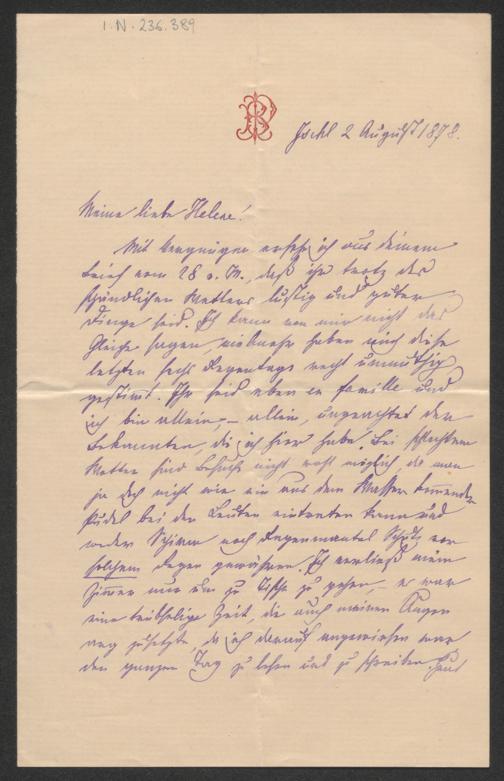 I. N. 236.389
Ischl 2 August 1878.
Meine liebe Helene!
Mit Vergnügen ersehe ich aus deinem
Brief vom 28 v. M., daß ihr trotz des
schändlichen Wetters lustig und guter
Dinge seid. Ich kann von mir nicht das
Gleiche sagen, vielmehr haben mich diese
letzten sechs Regentage recht unmuthig
gestimt. Ihr seid eben en famille und
ich bin allein, – allein, ungeachtet der
Bekannten, die ich hier habe. Bei schlechtem
Wetter sind Besuche nicht wohl möglich, da man
ja doch nicht wie ein aus dem Wasser komender
Pudel bei den Leuten eintreten kann und
weder Schirm noch Regenmantel Schutz vor
solchem Regen gewähren. Ich verließ mein
Zimer nur um zu Tische zu gehen, – es war
eine trübselige Zeit, die auch meinen Augen
arg zusetzte, da ich darauf angewiesen war
den ganzen Tag zu lesen und zu schreiben.